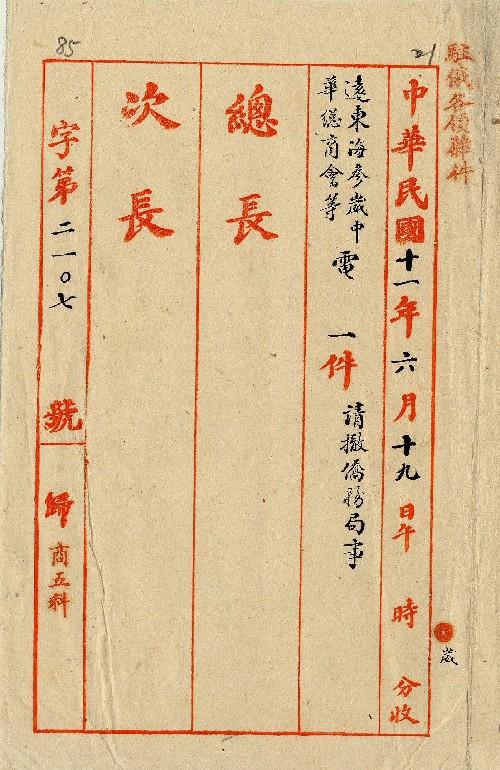 85
21
駐俄各領雜件
中華民國十一年六月十九日午 時 分收
遠東海參崴中
華總商會等
電 一件 請撤僑務局事
總長
次長
字第二一〇七號 歸商五科
崴